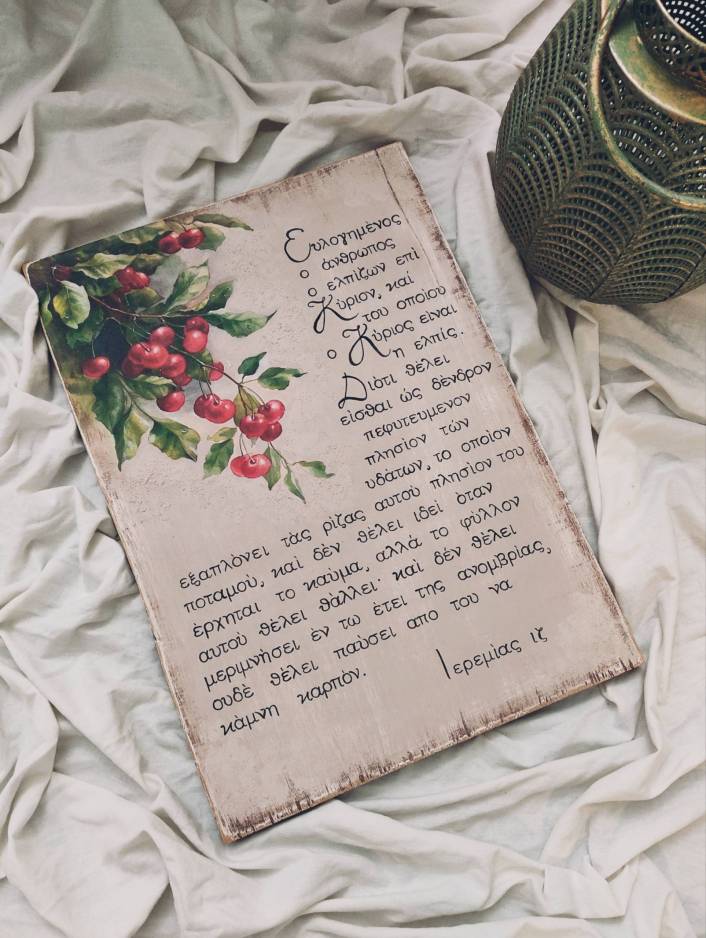 Ευλογημένος
ο άνθρωπος
ο ελπίζων επί
Κύριον, καί
του οποίου
ο Κύριος είναι
η ελπίς.
Διότι θέλει
είσθαι ώς δένδρον
πεφυτευμενον
πλησίον τών
υδάτων, το οποίον
εξαπλόνει τάς ρίζας αυτού πλησίον του
ποταμού, καί δέν θέλει ιδεί όταν
έρχηται το καύμα, αλλά το φύλλον
αυτού θέλει θάλλει· καί δέν θέλει
μεριμνήσει έν τω έτει της ανομβρίας,
ουδέ θέλει παύσει απο του να
κάμνη καρπόν.
Ιερεμίας ιζ